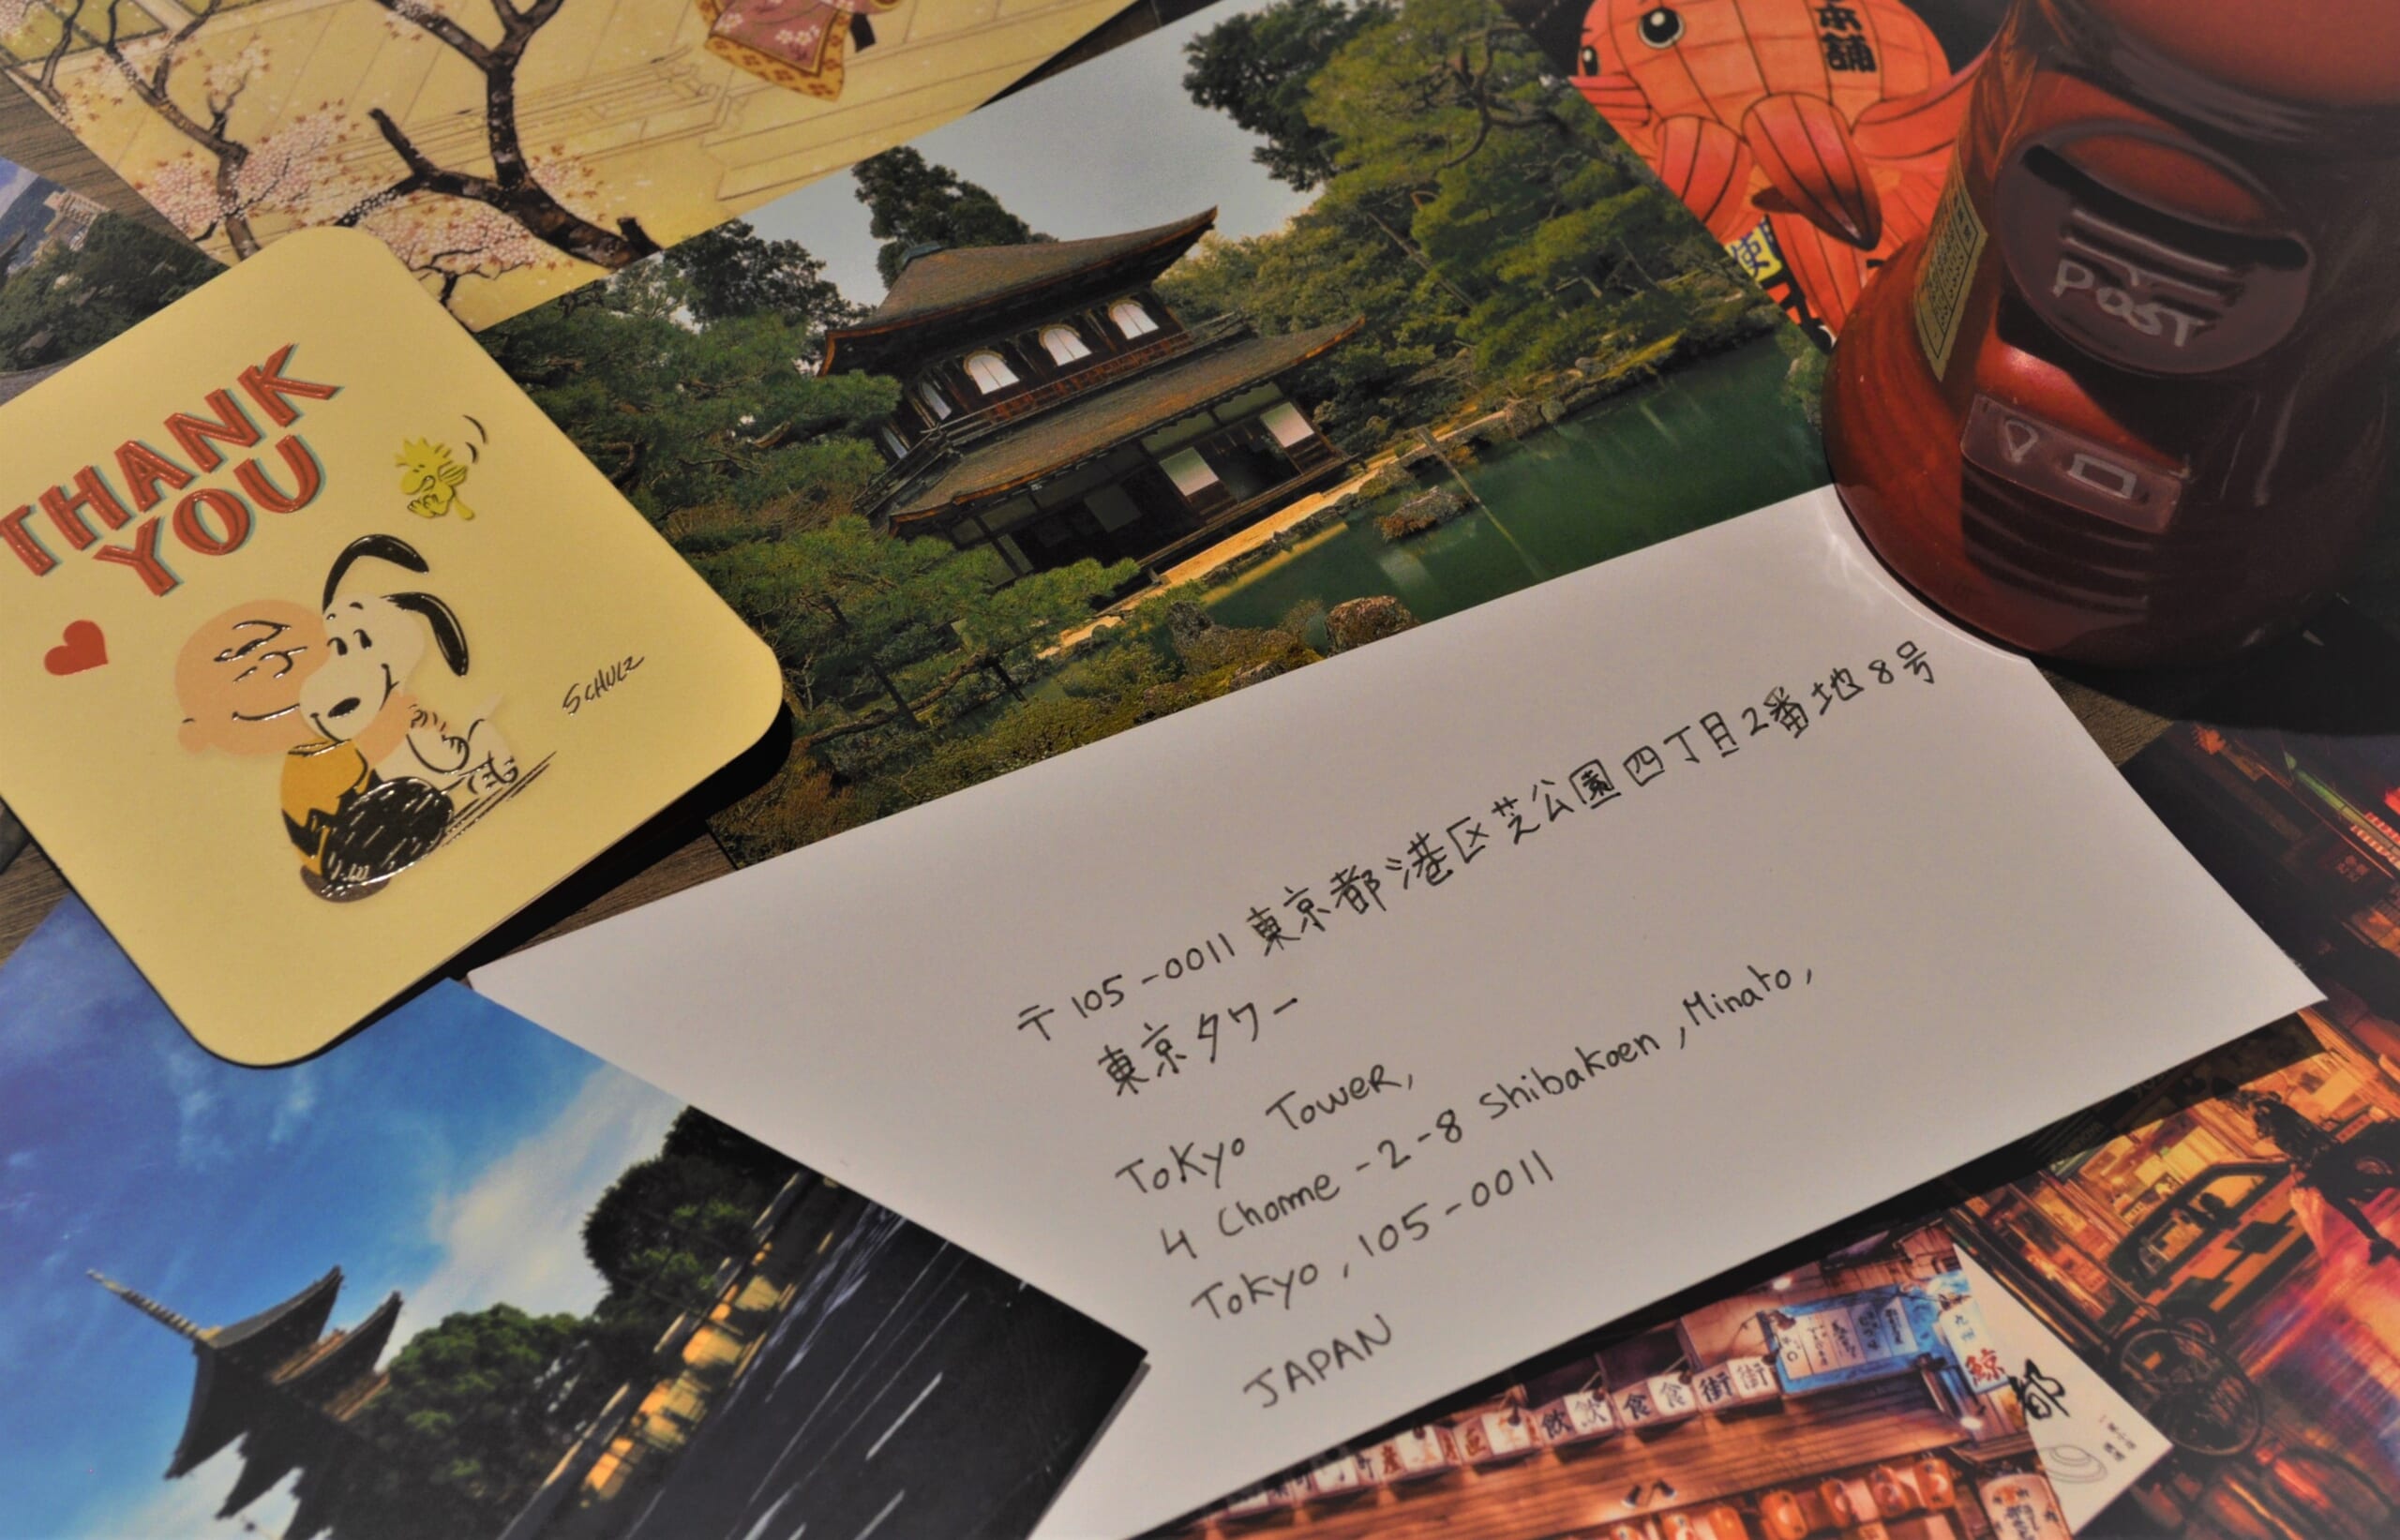 本舗
使
POST
THANK
YOU
SCHULZ
〒105-0011 東京都港区芝公園四丁目2番地8号
東京タワー
Tokyo Tower,
4 Chome-2-8 Shibakoen, Minato,
Tokyo, 105-0011
JAPAN
飲飲食食街街
鯨
都